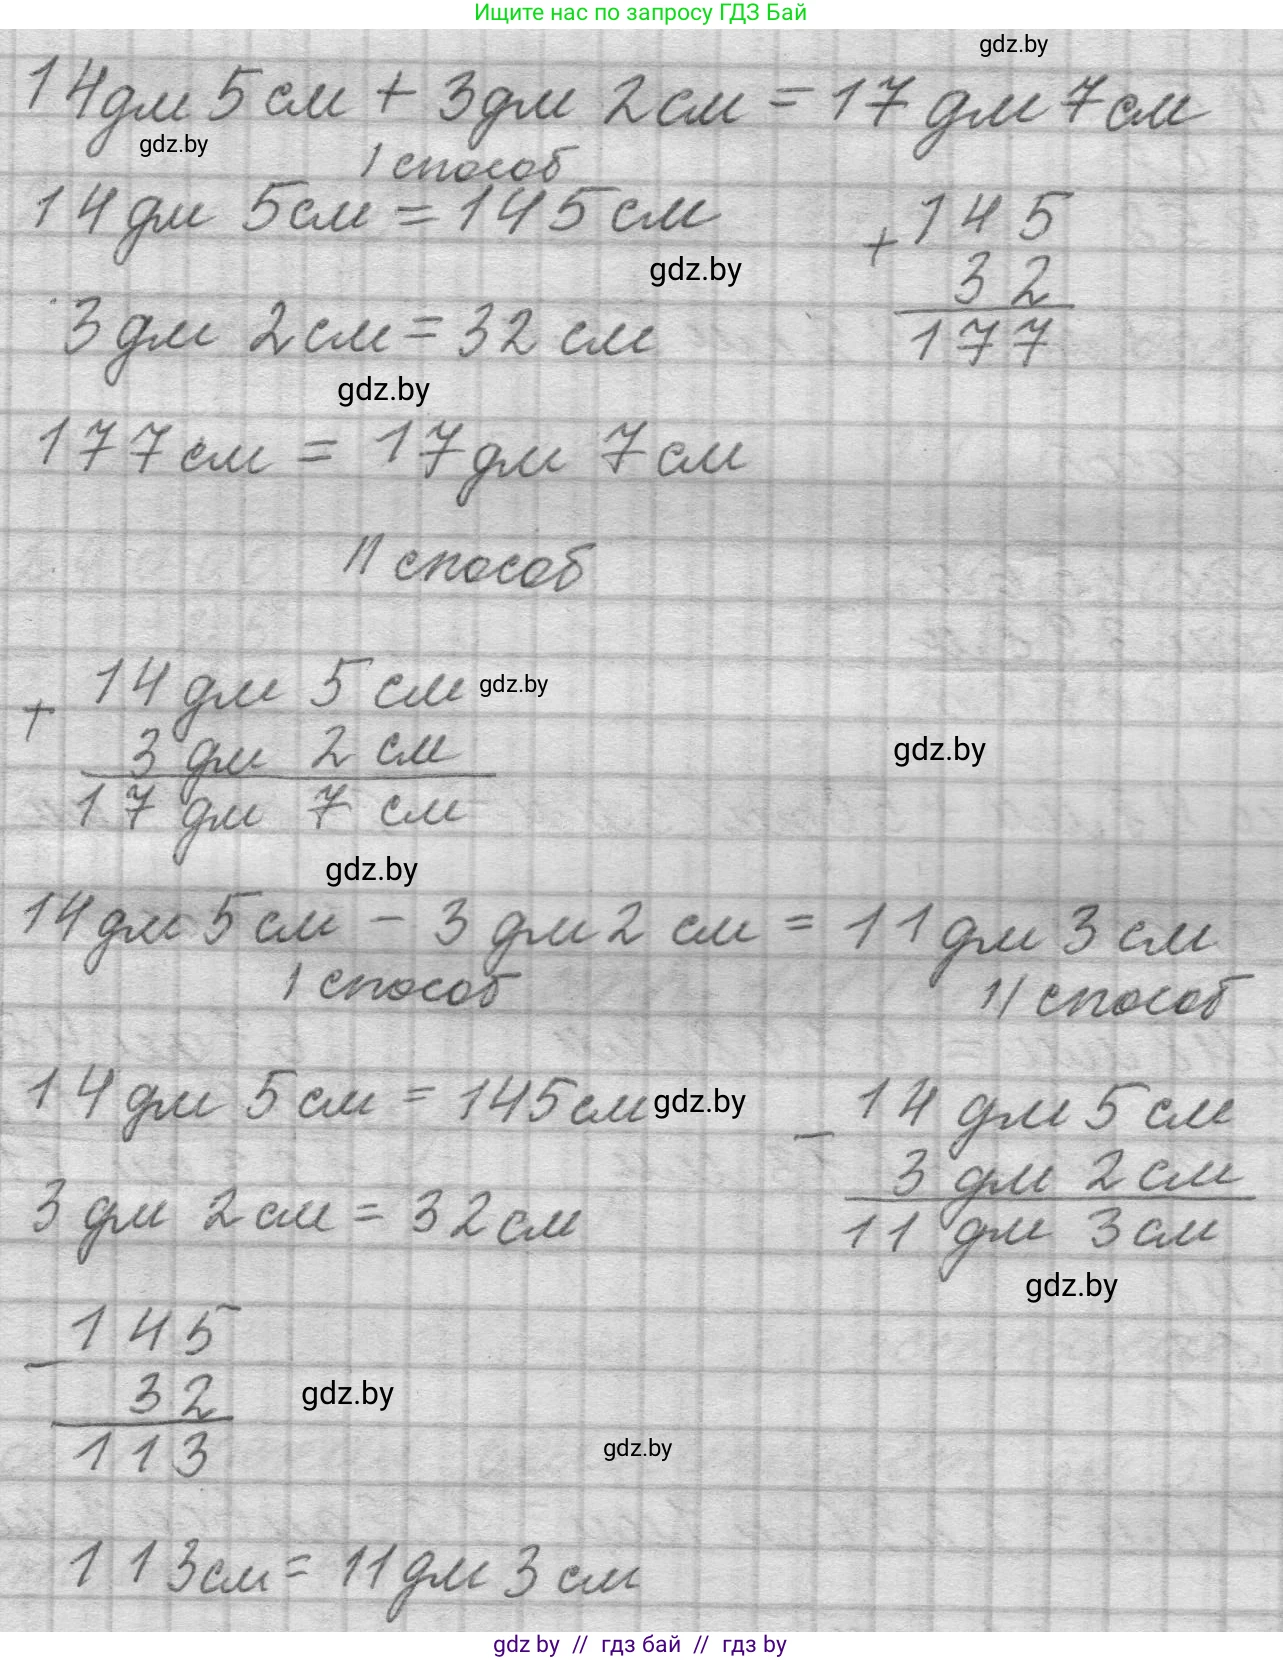 Ищите нас по запросу ГДЗ Бай
gdz.by
14дм 5см + 3дм 2см = 17дм 7см
gdz.by
I способ
14дм 5см = 145см
+145
32
177
gdz.by
3дм 2см = 32см
gdz.by
177см = 17дм 7см
II способ
+ 14дм 5см
gdz.by
3дм 2см
17дм 7см
gdz.by
gdz.by
14дм 5см - 3дм 2см = 11дм 3см
I способ
II способ
14дм 5см = 145см
gdz.by
- 14дм 5см
3дм 2см
11дм 3см
3дм 2см = 32см
gdz.by
- 145
32
113
gdz.by
gdz.by
113см = 11дм 3см
gdz by // гдз бай // гдз by